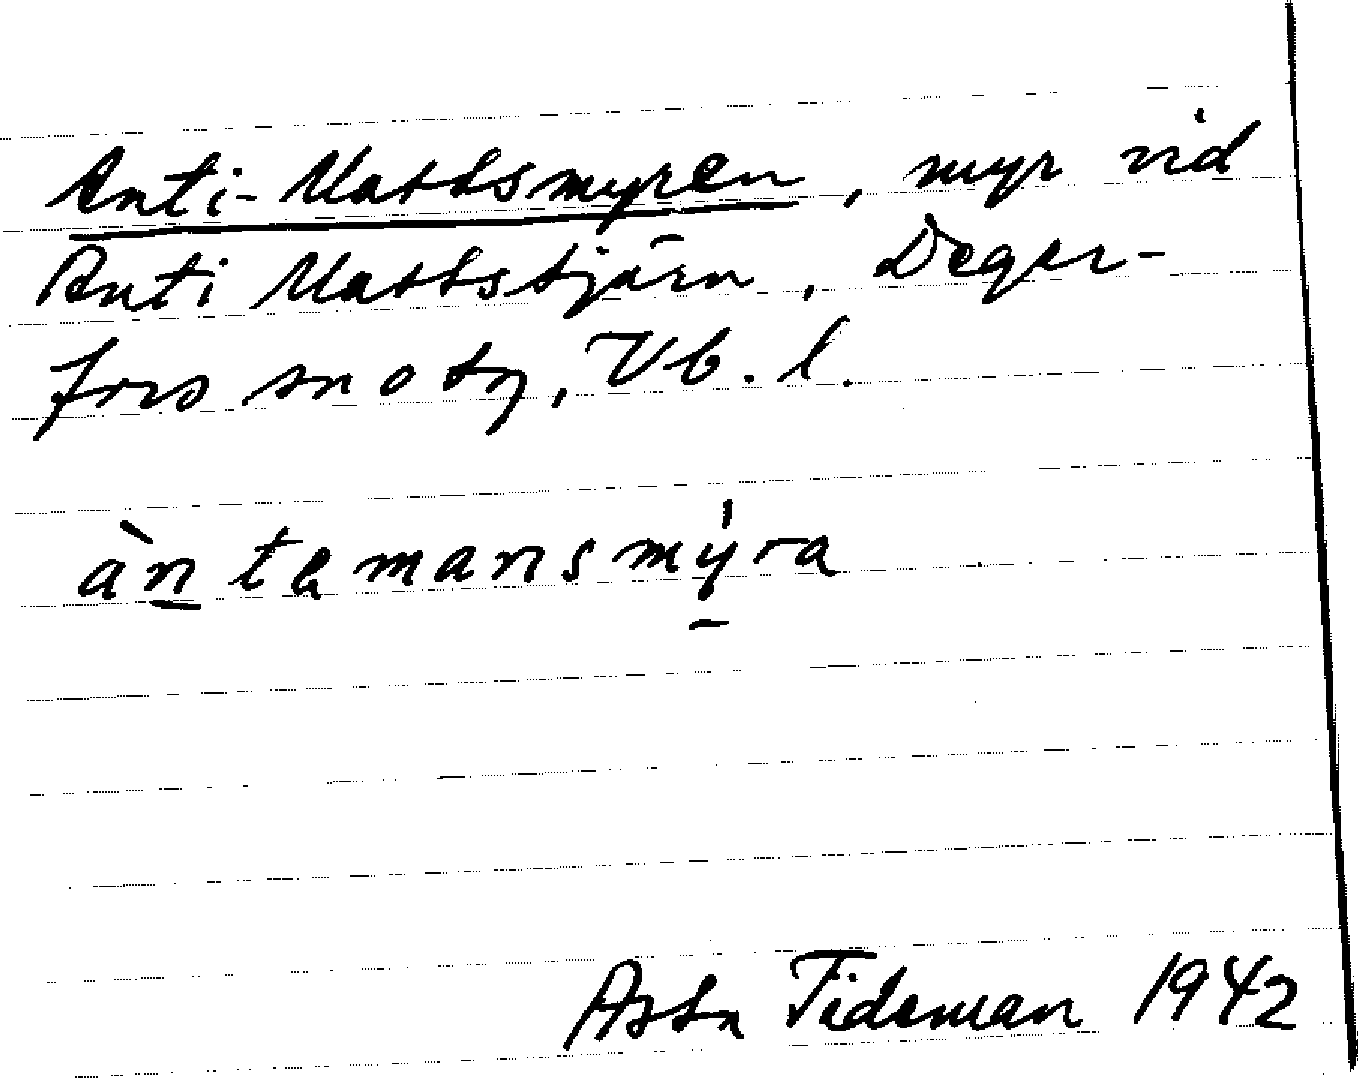 Anti-Mattsmyren, myr vid
Anti Mattstjärn, Deger-
fors sn o tg, Vb. l.
àntemansmýra
Asta Tideman 1942